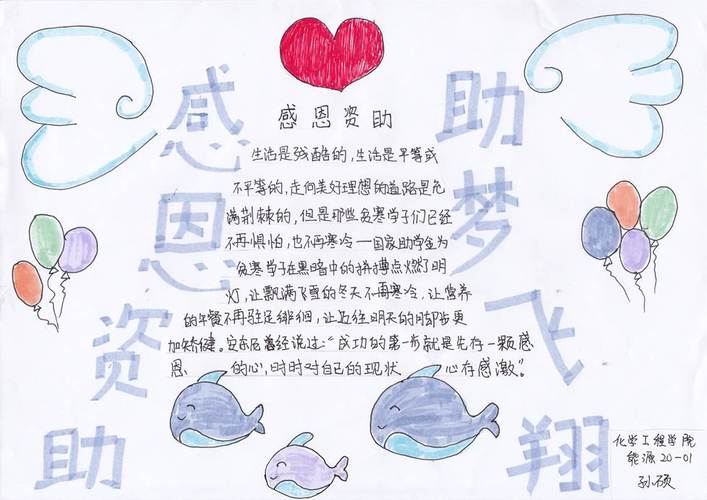 感恩资助
助梦飞翔
感恩资助
生活是残酷的，生活是平等或
不平等的，走向美好理想的道路是充
满荆棘的，但是那些贫寒学子们已经
不再惧怕，也不再寒冷—国家助学金为
贫寒学子在黑暗中的拼搏点燃了明
灯，让飘满飞雪的冬天不再寒冷，让营养
的午餐不再驻足徘徊，让迈往明天的脚步更
加矫健。安东尼曾经说过：“成功的第一步就是先存一颗感
恩 的心，时时对自己的现状 心存感激”。
化学工程学院
能源20-01
孙硕